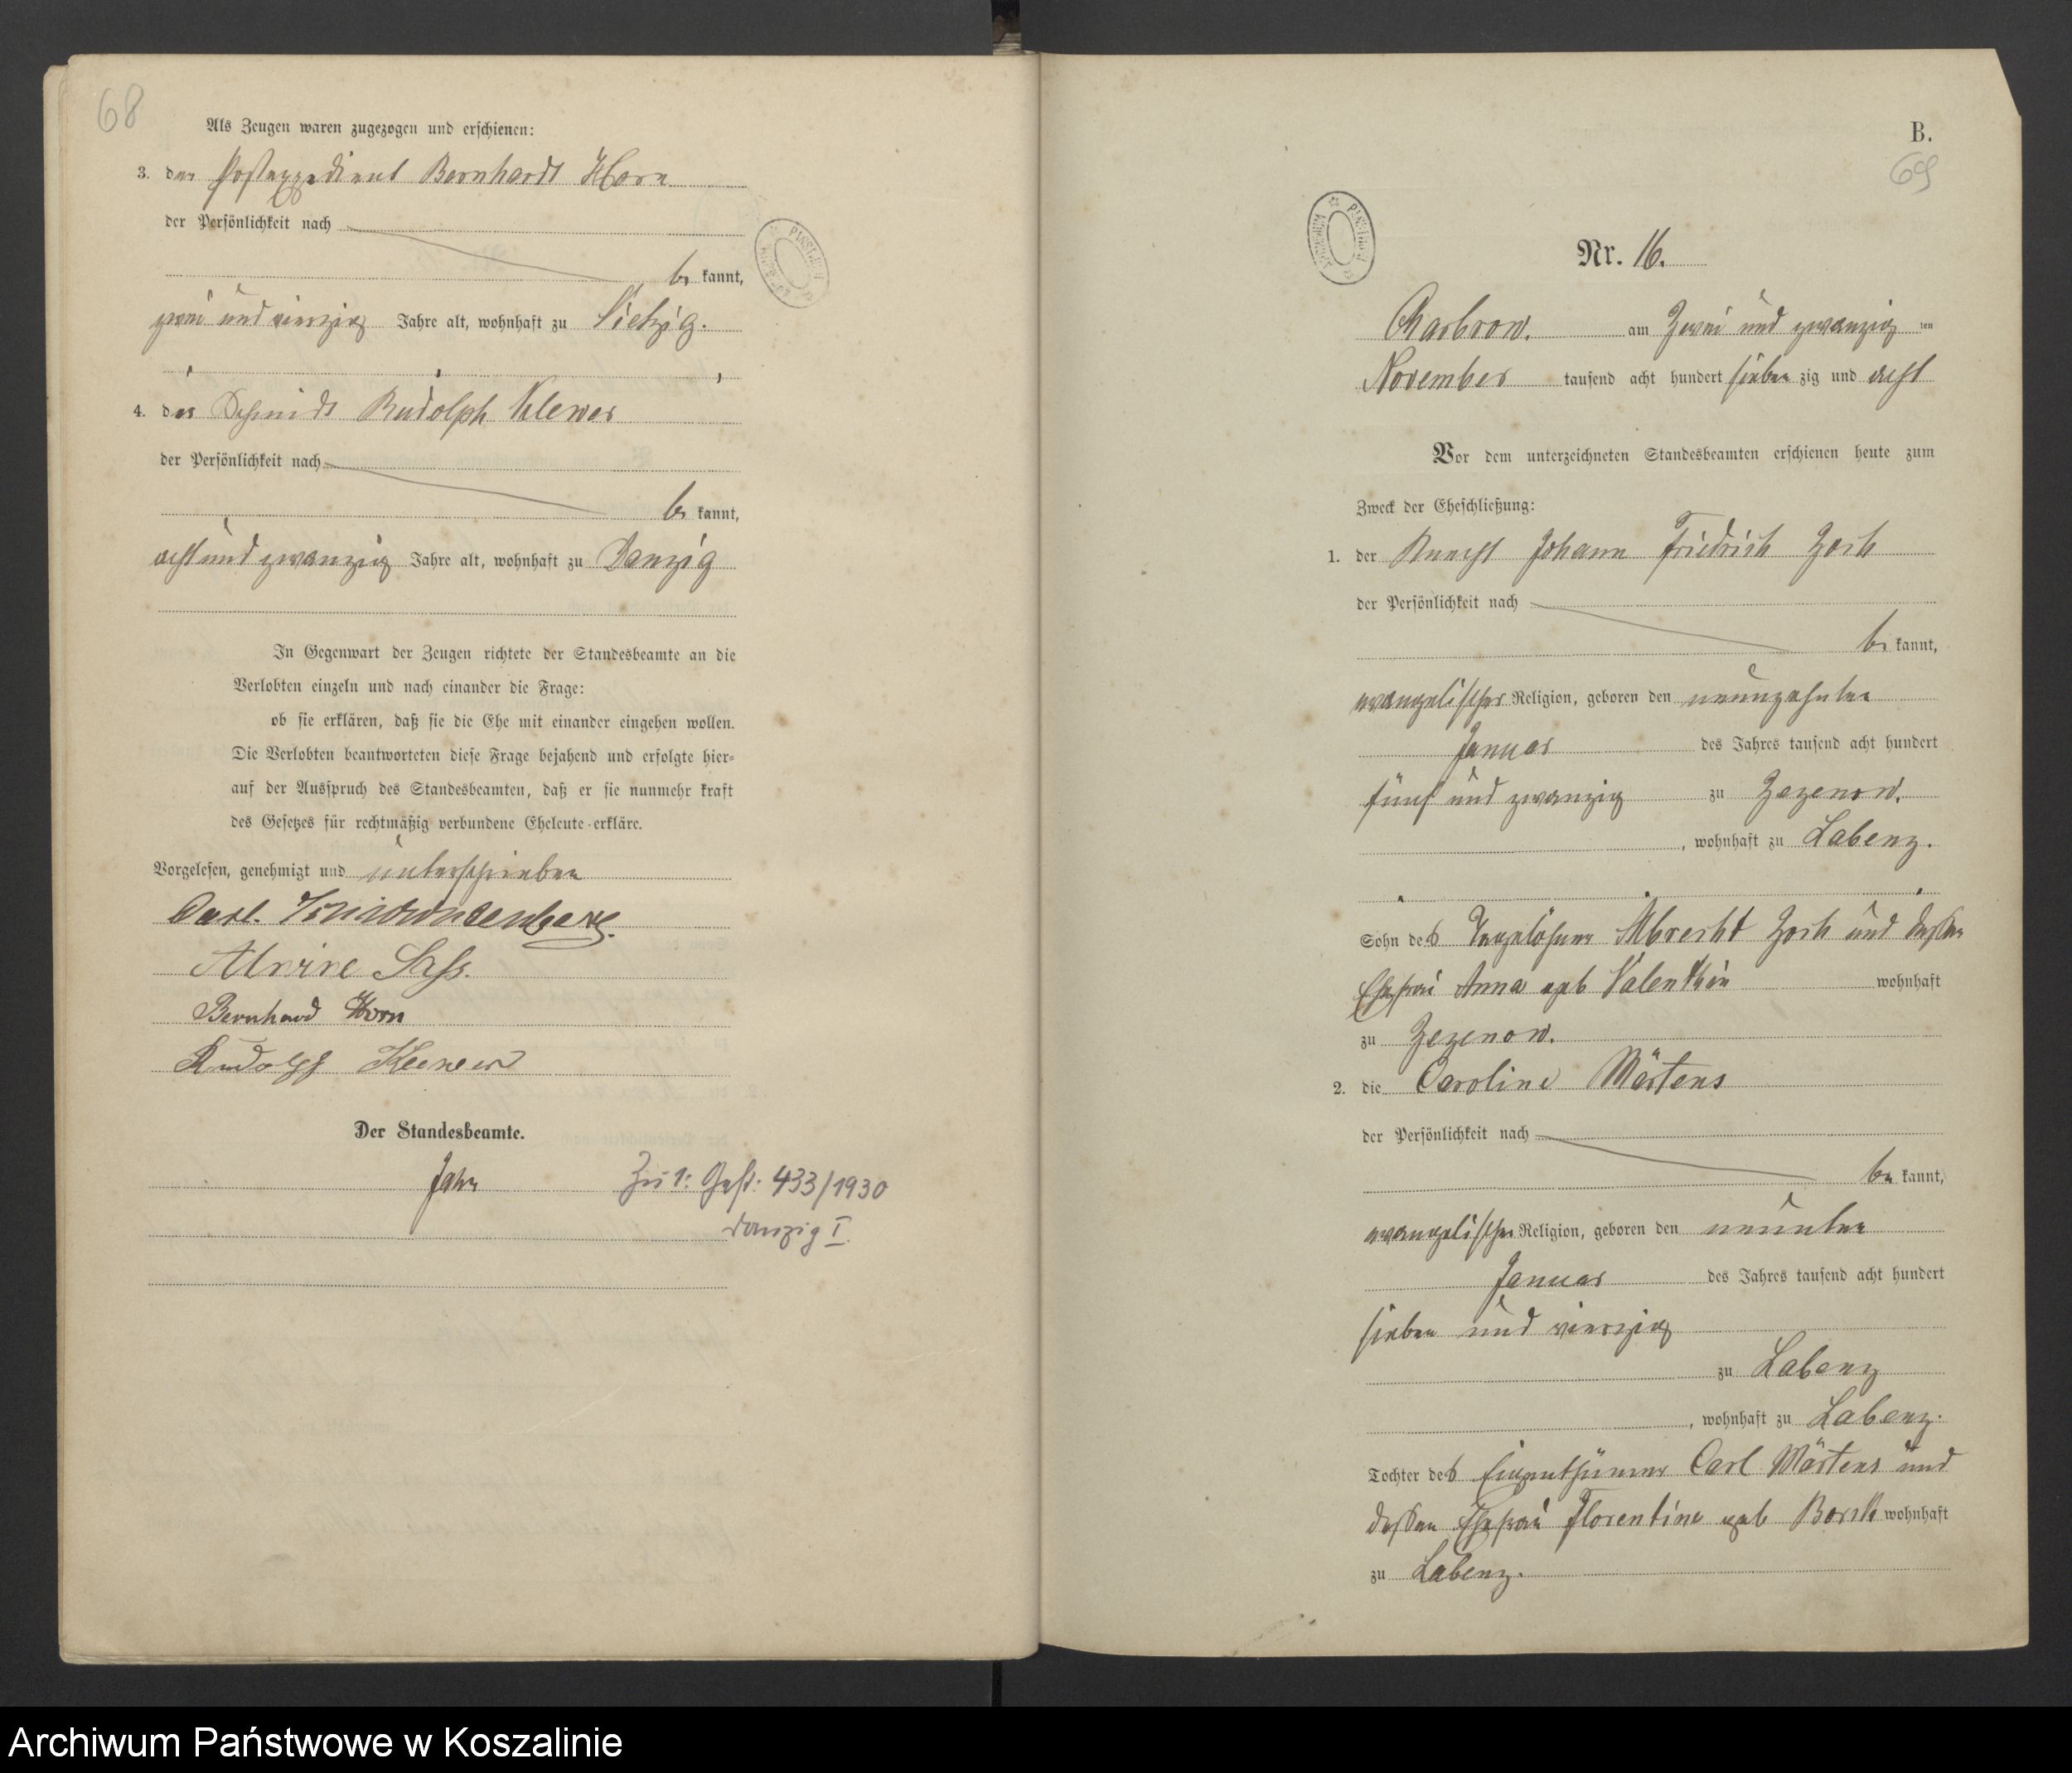 68
Als Zeugen waren zugezogen und erschienen:
3. der Postexpedient Bernhardt Horn
der Persönlichkeit nach
be kannt,
zwei und vierzig Jahre alt, wohnhaft zu Vietzig.
4. der Schmidt Rudolph Klewer
der Persönlichkeit nach
be kannt,
acht und zwanzig Jahre alt, wohnhaft zu Danzig
In Gegenwart der Zeugen richtete der Standesbeamte an die
Verlobten einzeln und nach einander die Frage:
ob sie erklären, daß sie die Ehe mit einander eingehen wollen.
Die Verlobten beantworteten diese Frage bejahend und erfolgte hier-
auf der Ausspruch des Standesbeamten, daß er sie nunmehr kraft
des Gesetzes für rechtmäßig verbundene Eheleute erkläre.
Vorgelesen, genehmigt und unterschrieben
Carl.
Alwine Saß.
Bernhard Horn
Rudolf Klewer
Der Standesbeamte.
Jahn
Zu 1: Gest: 433/1930
Danzig I.
B.
69
Nr. 16.
Charbrow. am Zwei und zwanzig ten
November tausend acht hundert sieben zig und acht
Vor dem unterzeichneten Standesbeamten erschienen heute zum
Zweck der Eheschließung:
1. der Knecht Johann Friedrich Zoch
der Persönlichkeit nach
be kannt,
evangelischer Religion, geboren den neunzehnten
Januar des Jahres tausend acht hundert
fünf und zwanzig zu Zezenow.
, wohnhaft zu Labenz.
Sohn des Tagelöhner Albrecht Zoch und dessen
Ehefrau Anna geb Valentin wohnhaft
zu Zezenow.
2. die Caroline Märtens
der Persönlichkeit nach
be kannt,
evangelischer Religion, geboren den neunten
Januar des Jahres tausend acht hundert
sieben und vierzig
zu Labenz
, wohnhaft zu Labenz.
Tochter des Eigenthümer Carl Märtens und
dessen Ehefrau Florentine geb Borck wohnhaft
zu Labenz.
Archiwum Państwowe w Koszalinie